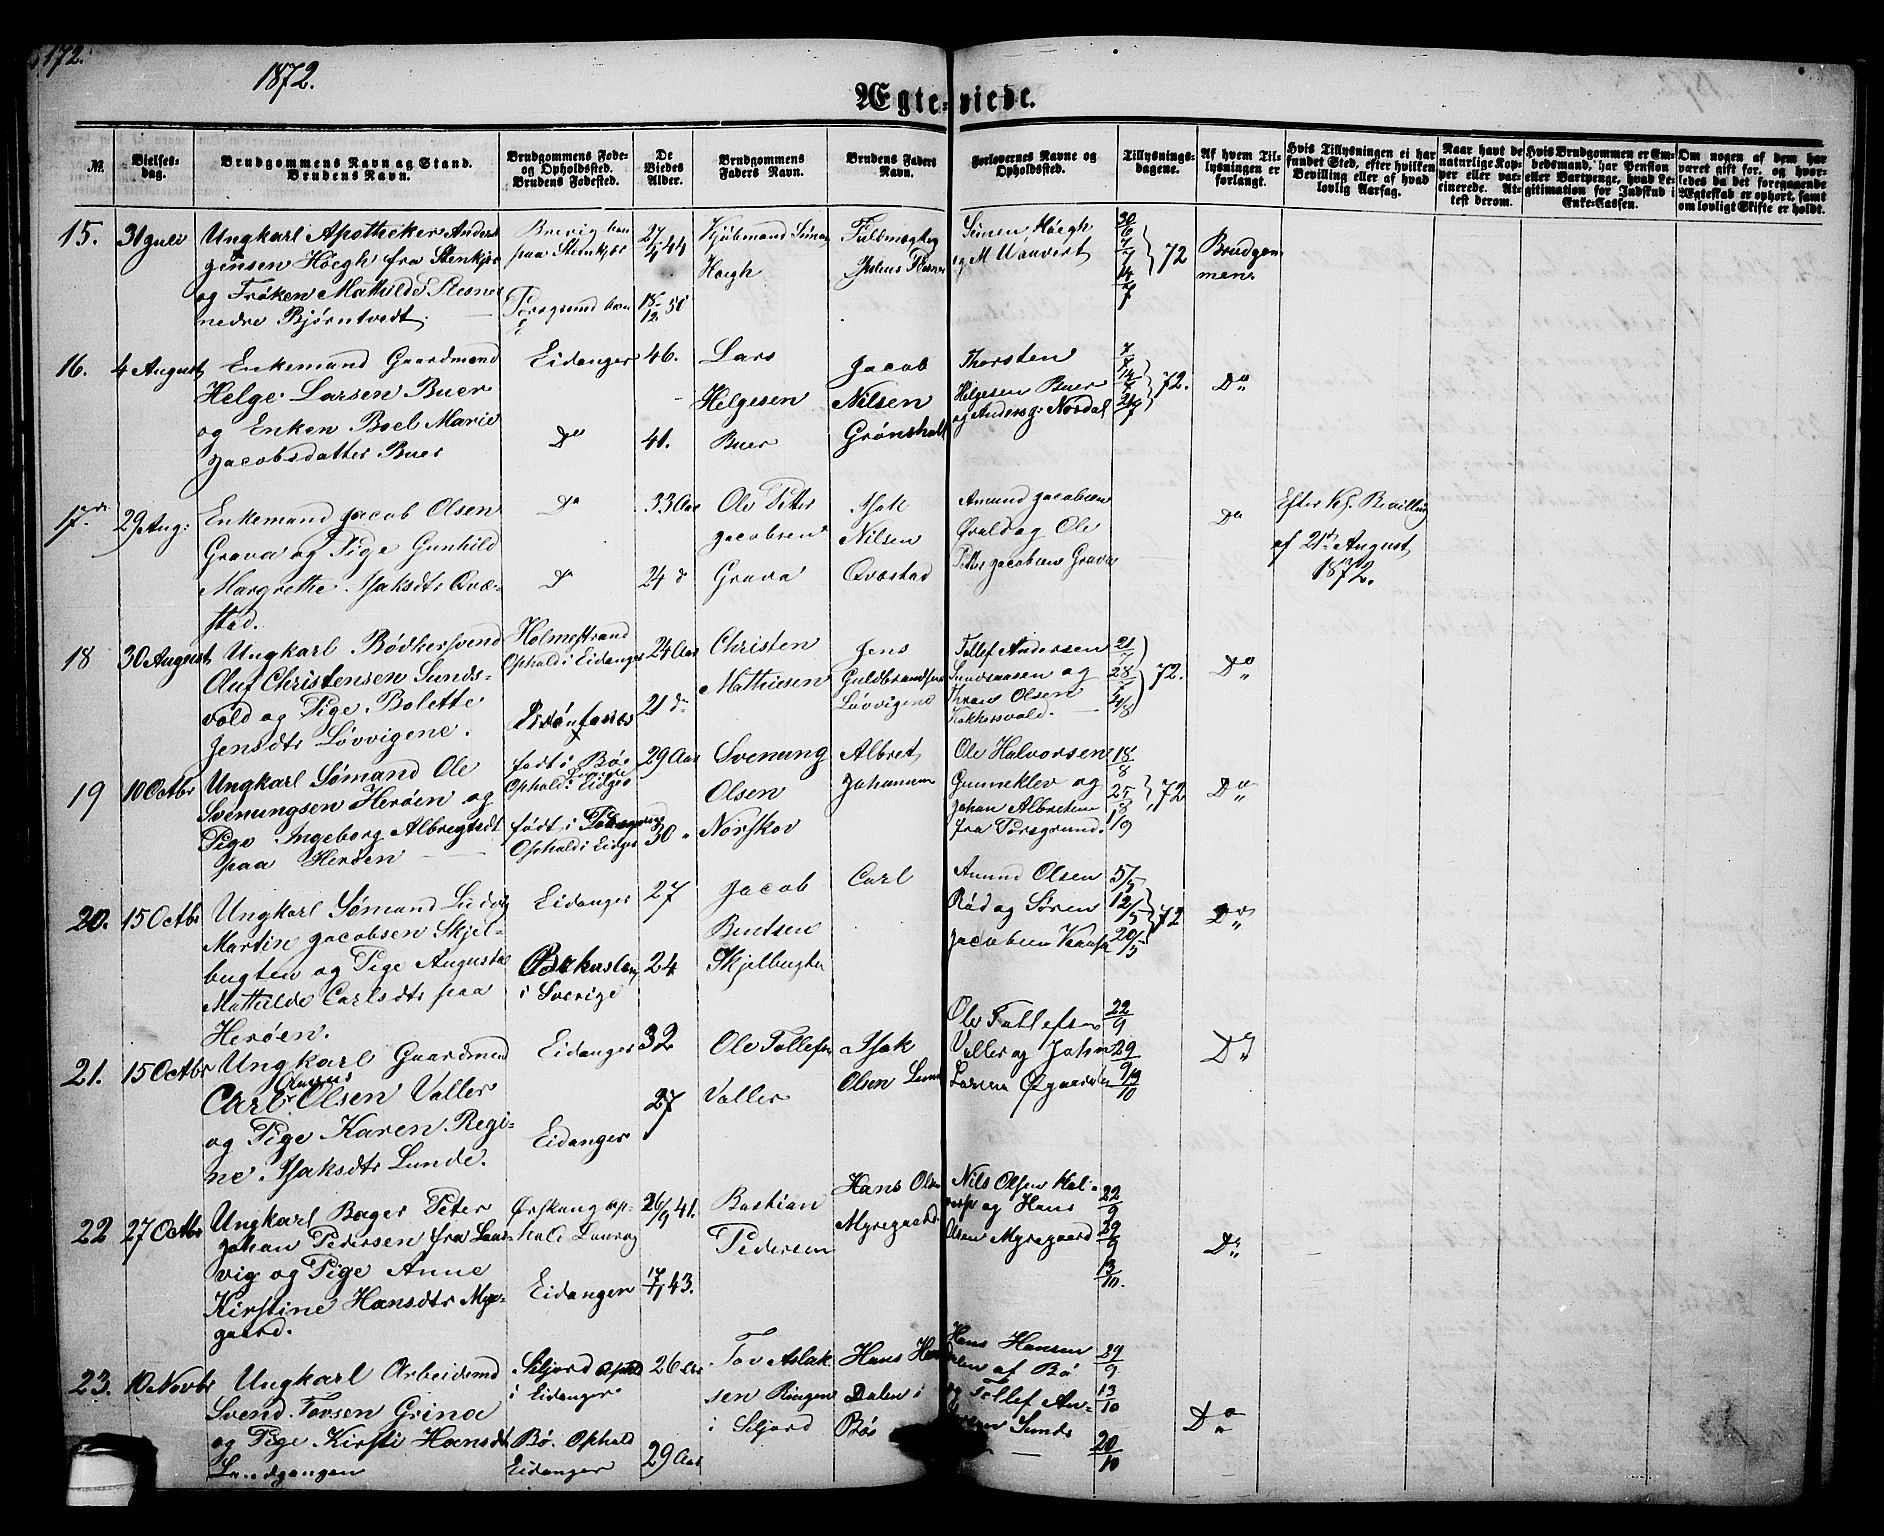 172.
1872.
Ægte-viede.
№.
Vielses-
dag.
Brudgommens Navn og Stand.
Brudens Navn.
Brudgommens Føde-
og Opholdssted.
Brudens Fødested.
De
Viedes
Alder.
Brudgommens
Faders Navn.
Brudens Faders
Navn.
Forlovernes Navne og
Opholdssted.
Tillysnings-
dagene.
Af hvem Til-
lysningen er
forlangt.
Hvis Tillysningen ei har
fundet Sted, efter hvilken
Bevilling eller af hvad
lovlig Aarsag.
Naar havt de
naturlige Kop-
per eller vac-
cinerede. At-
test derom.
Hvis Brudgommen er Em-
bedsmand, har Pension
eller Vartpenge, hvad Le-
gitimation for Indskud i
Enke-Cassen.
Om nogen af dem har
været gift før, og hvor-
ledes da det foregaaende
Ægteskab er ophørt, samt
om lovligt Skifte er holdt.
15. 31 Juli
Ungkarl Apotheker Anders
Jensen Höegh fra Stenkjær
og Frøken Mathilde
nedre Bjørntvedt.
Brevig
paa Stenkjær
Porsgrund
27/4 44
18/12 50
Kjøbmand Simon
Høegh
Fuldmægtig
Julius
Simen Höegh
og M
30/6
7/7
14/7
72
Brudgom-
men.
16. 4 August
Enkemand Gaardmand
Helge Larsen Buer
og Enken Boel Marie
Jacobsdatter Buer
Eidanger
Do
46.
41.
Lars
Helgesen
Buer
Jacob
Nilsen
Grönsholt
Thorsten
Helgesen Buer
og Anders Nordal
7/7
14/7
21/7
72.
Do
17. 29 Aug:
Enkemand Jacob Olsen
Grava og Pige Gunhild
Margrethe Isaksdtr Qvæ-
stad.
Do
Do
33 Aar
24 d
Ole Petter
Jacobsen
Grava
Isak
Nilsen
Qvæstad
Amund Jacobsen
Ørald og Ole
Petter Jacobsen Grava
Do
Efter Kg. Bevilling
af 21de August
1872.
18 30 August
Ungkarl Bødkersvend
Oluf Christensen Sunds-
vold og Pige Bolette
Jensdtr Lövvigene.
Holmestrand
Ophold i Eidanger
24 Aar
21 do
Christen
Mathiesen
Jens
Guldbrandsen
Lövvigene
Tollef Andersen
Sundsaasen og
Olsen
21/7
28/7
4/8
72.
Do
19 10 Octbr
Ungkarl Sømand Ole
Svenungsen Herøen og
Pige Ingeborg Albregtsdt
paa Herøen
født i Bø
Ophold i Eidgr
født i Porsgrund
Ophold i Eidgr
29 Aar
30 "
Svenung
Olsen
Norskov
Albret
Johannesen
Ole Halvorsen
Gunneklev og
Johan Albretsen
fra Porsgrund.
18/8
25/8
1/9
72
Do
20. 15 Octbr
Ungkarl Sømand Ludvig
Martin Jacobsen Skjel-
bugten og Pige Augusta
Mathilde Carlsdtr paa
Herøen.
Eidanger
Bohuslen
i Sverige
27
24
Jacob
Bentsen
Skjelbugten
Carl
Amund Olsen
Rød og Sören
Jacobsen
5/5
12/5
20/5
72
Do
21. 15 Octbr
Ungkarl Gaardmand
Carl Olaves Olsen Valler
og Pige Karen Regi-
ne Isaksdtr Lunde.
Eidanger
Eidanger
32
27
Ole Tollefsen
Valler
Isak
Olsen Lunde
Ole Tollefsen
Valler og John
Larsen Øigaarden
22/9
29/9
13/10
Do
22 27 Octbr
Ungkarl Bager Peter
Johan Pedersen fra Laur-
vig og Pige Anne
Kirstine Hansdtr Myre-
gaard.
Ørskaug op-
hold Laurvig
Eidanger
26/9 41.
17/1 43.
Bastian
Pedersen
Hans Olsen
Myregaard
Nils Olsen
og Hans
Olsen Myregaard
22/9
29/9
13/10.
Do
23. 10 Novbr
Ungkarl Arbeidsmd
Svend Tovsen Grina
og Pige Kirsti Hansdt
Landgangen
Siljord Ophold
i Eidanger
Bø. Ophold
Eidanger
26 Aar
29 Aar
Tov Aslak-
sen Ringen
i Siljord
Hans
Dalen i
Bø
Hans Hansen
af Bø
og Tollef An-
dersen Sunds
29/9
13/10
20/10
Do